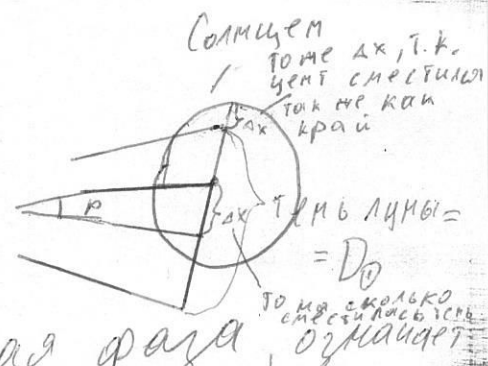 Солнцем
тоже Δx, т.к.
цент сместился
так же как
край
Δx
ρ
Δx
тень луны=
= D⊕
то на сколько
сместилась тень
ая фаза, означает